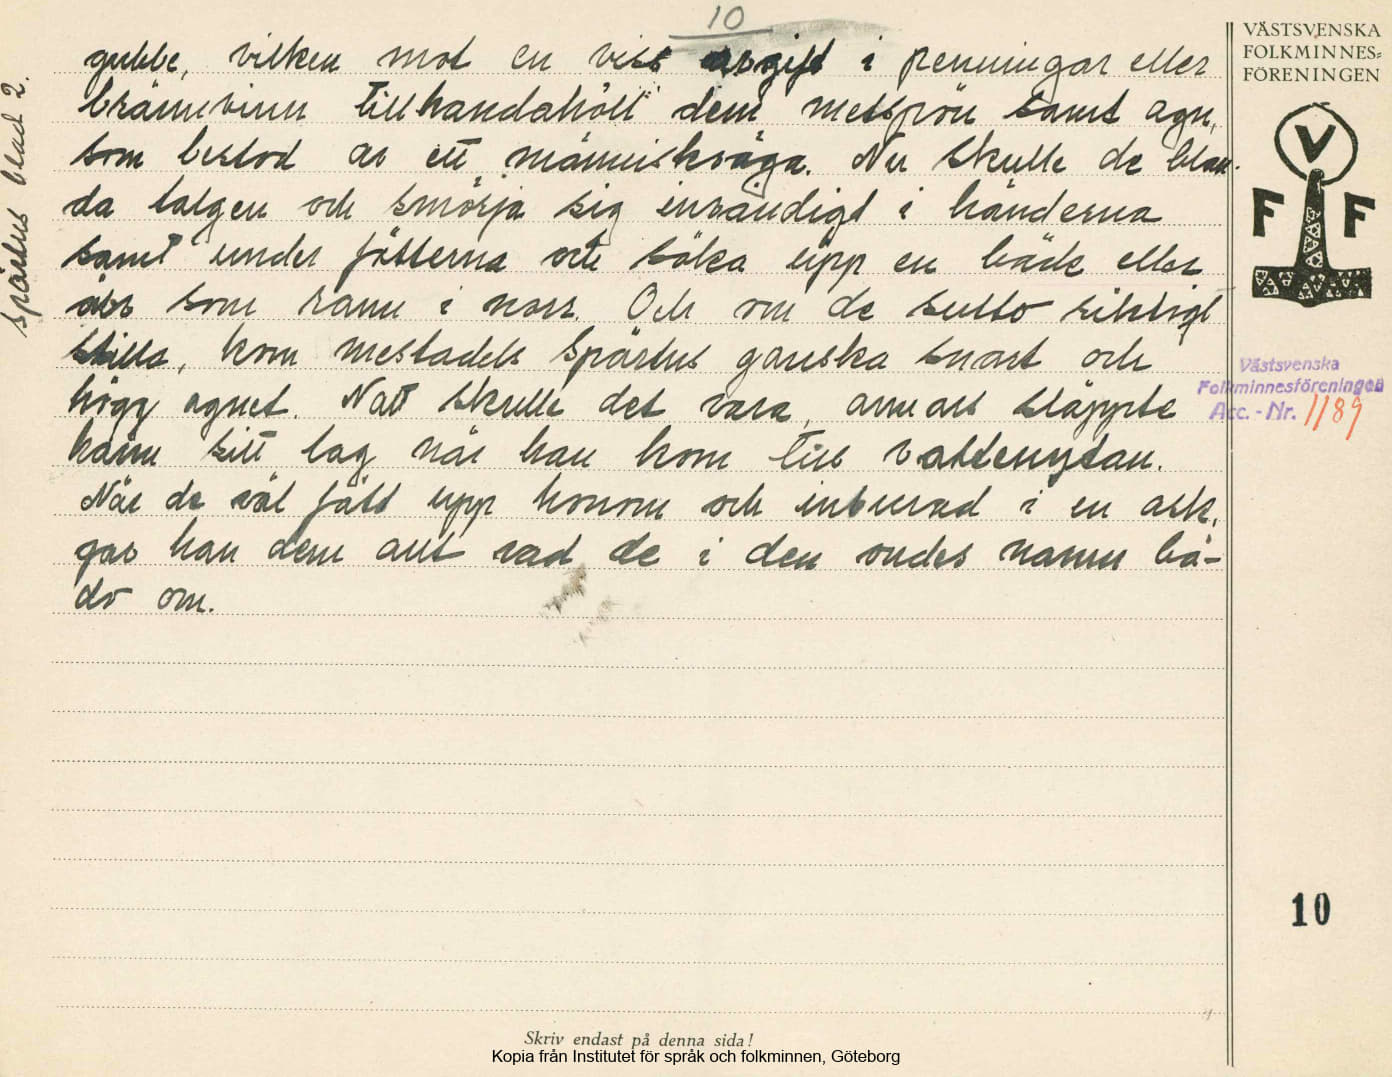 10
gubbe, vilken mot en viss avgift i penningar eller
brännvinn tillhandahöll dem metspön samt agn,
som bestod av ett människoöga. Nu skulle de blan-
da talgen och smörja sig invändigt i händerna
samt under fötterna och söka upp en bäck eller
som rann i norr. Och om de sutto riktigt
stilla, kom mestadels Spärtus ganska snart och
högg agnet. Natt skulle det vara, annars släppte
hann sitt tag när han kom till vattenytan.
När de väl fått upp honom och inburad i en ask,
gav han dem allt vad de i den ondes namn bå-
do om.
Spärtus blad 2.
VÄSTSVENSKA
FOLKMINNES-
FÖRENINGEN
V
F F
Västsvenska
Folkminnesföreningen
Acc. - Nr. 1189
10
Skriv endast på denna sida!
Kopia från Institutet för språk och folkminnen, Göteborg